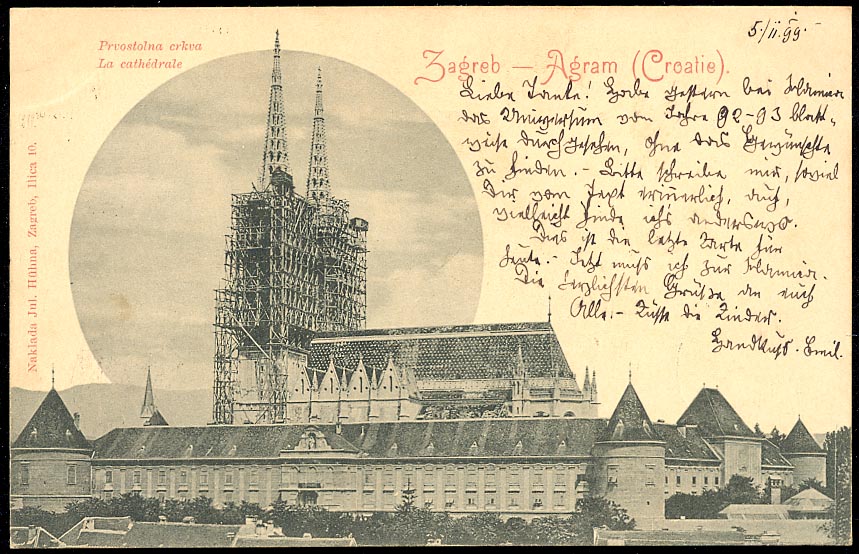 5/ii.99.
Prvostolna crkva
La cathédrale
Zagreb — Agram (Croatie).
Naklada Jul. Hühna, Zagreb, Ilica 10.
Liebe Tante! Habe gestern bei
das Universum vom Jahre 92-93 blatt-
weise durchgesehen, ohne das Gewünschte
zu finden. - Bitte schreibe mir, soviel
Dir vom Text erinnerlich, auch,
vielleicht finde ichs anderswo.
Dies ist die letzte Karte für
heute. - Jetzt muss ich zur
Die herzlichsten Grüße an euch
Alle. - Küsse die Kinder.
Handkuss. Emil.